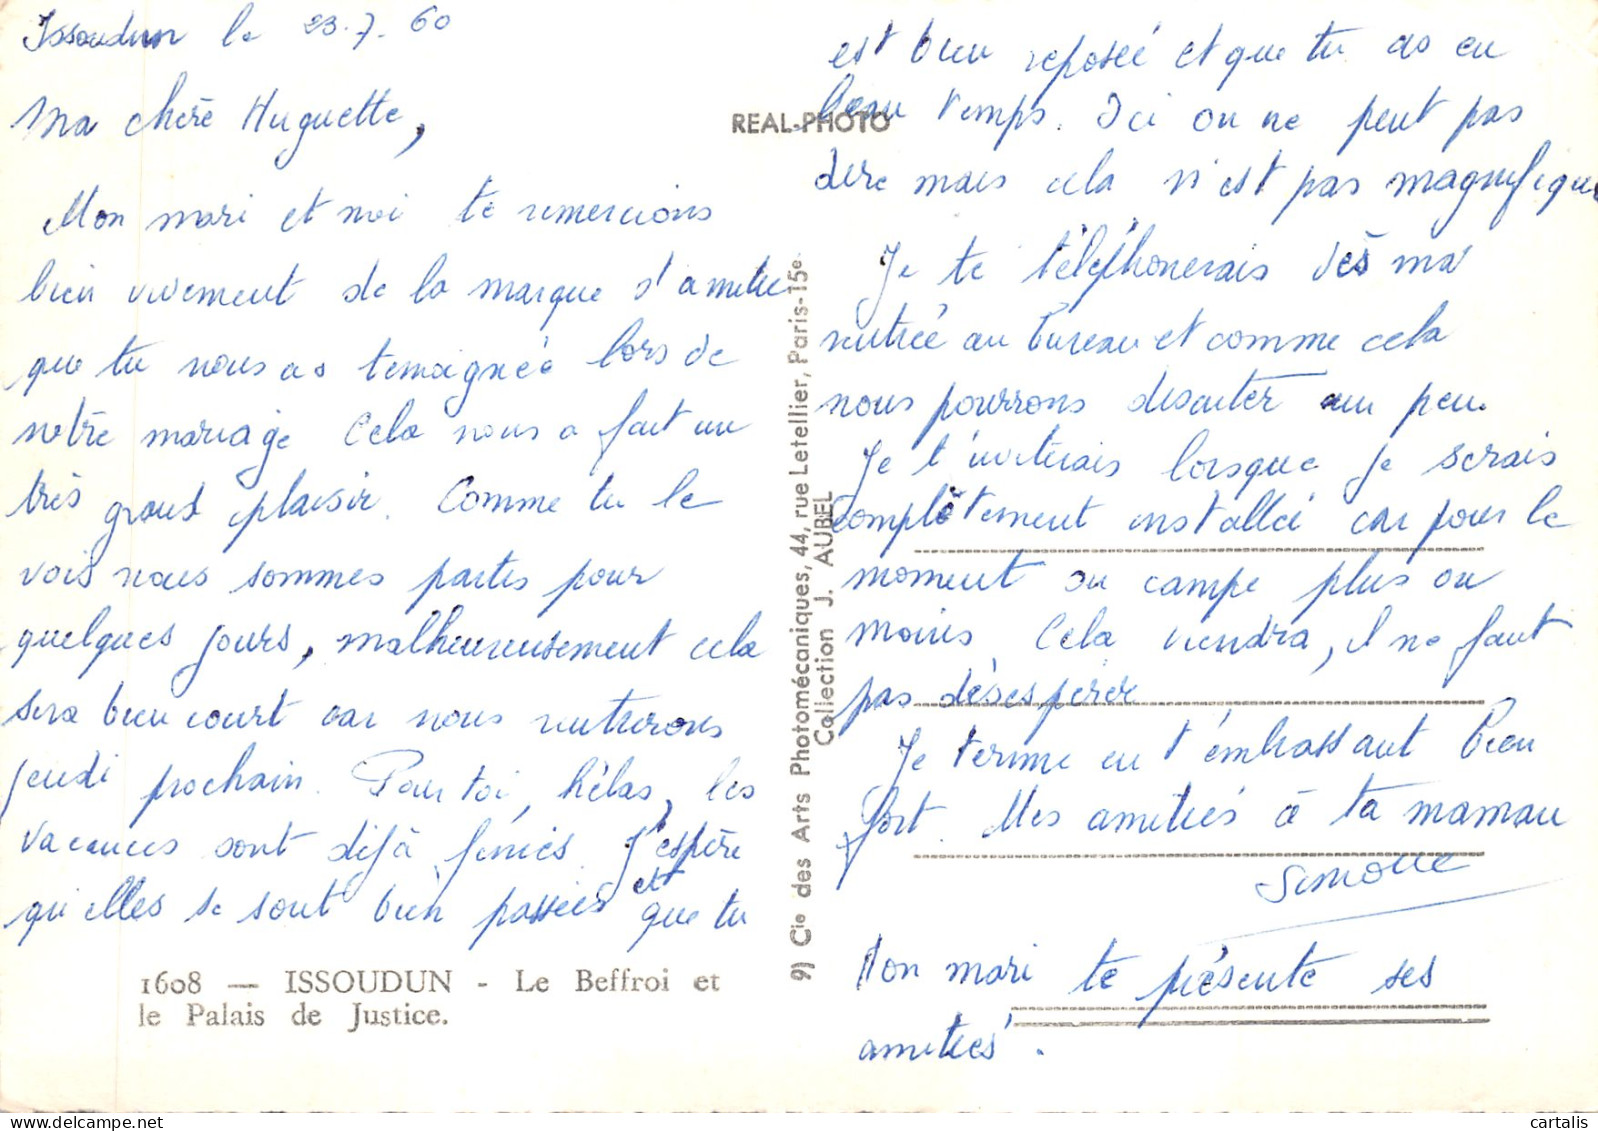 Issoudun le 23.7.60
Ma chère Huguette,
Mon mari et moi te remercions
bien vivement de la marque d'amitié
que tu nous as temoignée lors de
nôtre mariage Cela nous a fait un
très grand plaisir. Comme tu le
vois nous sommes partis pour
quelques jours, malheureusement cela
sera bien court car nous rentrerons
jeudi prochain. Pour toi, hélas, les
vacances sont déjà finies. J'espère
qu'elles se sont bien passées et que tu
1608 — ISSOUDUN - Le Beffroi et
le Palais de Justice.
REAL-PHOTO
9) Cie des Arts Photomécaniques, 44, rue Letellier, Paris-15e
Collection J. AUBEL
est bien reposée et que tu as eu
beau temps. Ici on ne peut pas
dire mais cela n'est pas magnifique
Je te téléphonerais dès ma
rentrée au bureau et comme cela
nous pourrons discuter un peu.
Je t'inviterais lorsque je serais
complètement installée car pour le
moment on campe plus ou
moins. Cela viendra, il ne faut
pas désespérer
Je termine en t'embrassant bien
fort. Mes amitiés à ta maman
Simone
Mon mari te présente ses
amitiés.
cartalis
www.delcampe.net